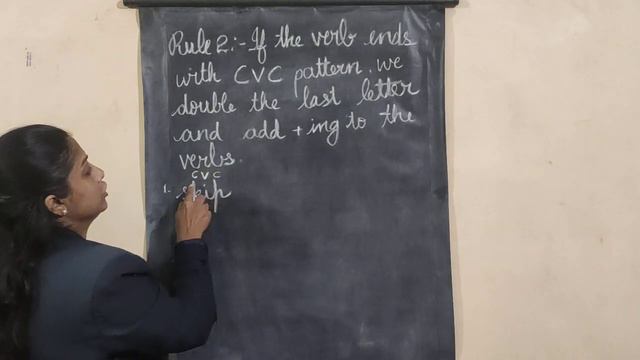 Rule 2:- If the verb ends
with CVC pattern, we
double the last letter
and add + ing to the
verbs.
C V C
1. skip